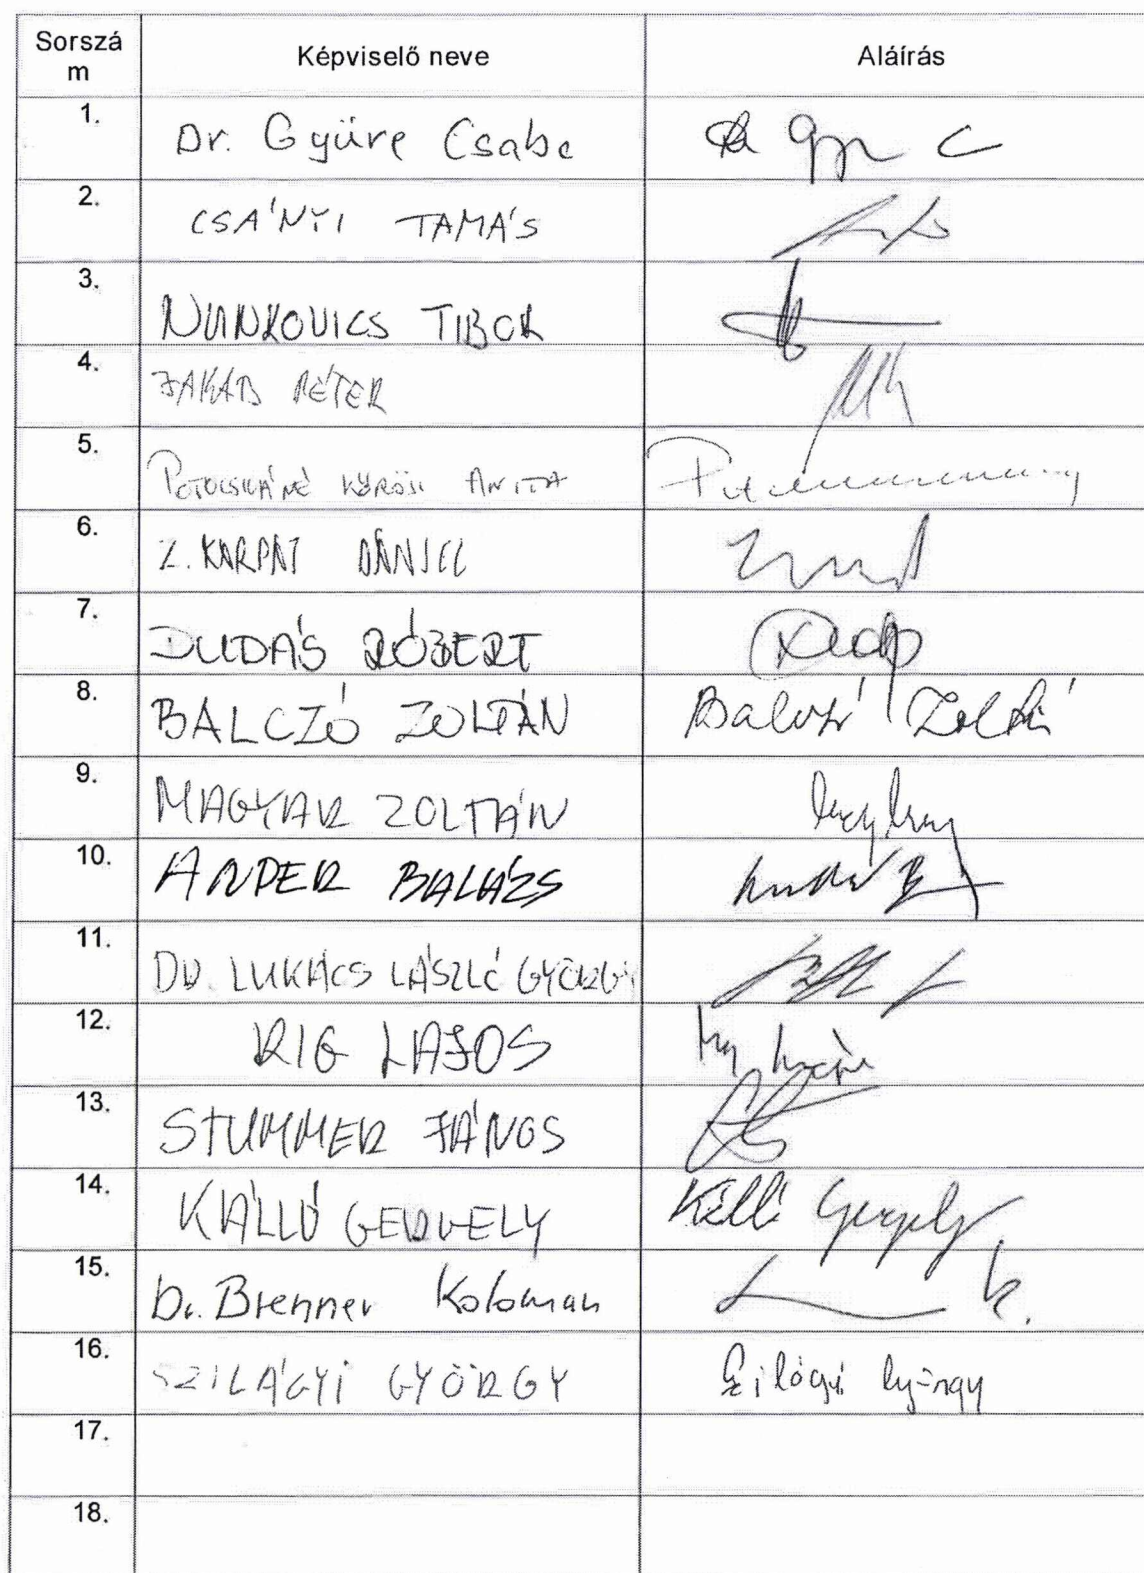 Sorszá
m
Képviselő neve
Aláírás
1. Dr. Gyüre Csaba
2. CSÁNYI TAMÁS
3. NUNKOVICS TIBOR
4. JAKAB PÉTER
5. POTOCSKÁNÉ KŐRÖSI ANITA
6. Z. KÁRPÁT DÁNIEL
7. DUDÁS RÓBERT
8. BALCZÓ ZOLTÁN Balczó Zoltán
9. MAGYAR ZOLTÁN
10. ANDER BALÁZS
11. Dr. LUKÁCS LÁSZLÓ GYÖRGY
12. RIG LAJOS
13. STUMMER JÁNOS
14. KÁLLÓ GERGELY Kálló Gergely
15. Dr. Brenner Koloman
16. SZILÁGYI GYÖRGY Szilágyi György
17.
18.